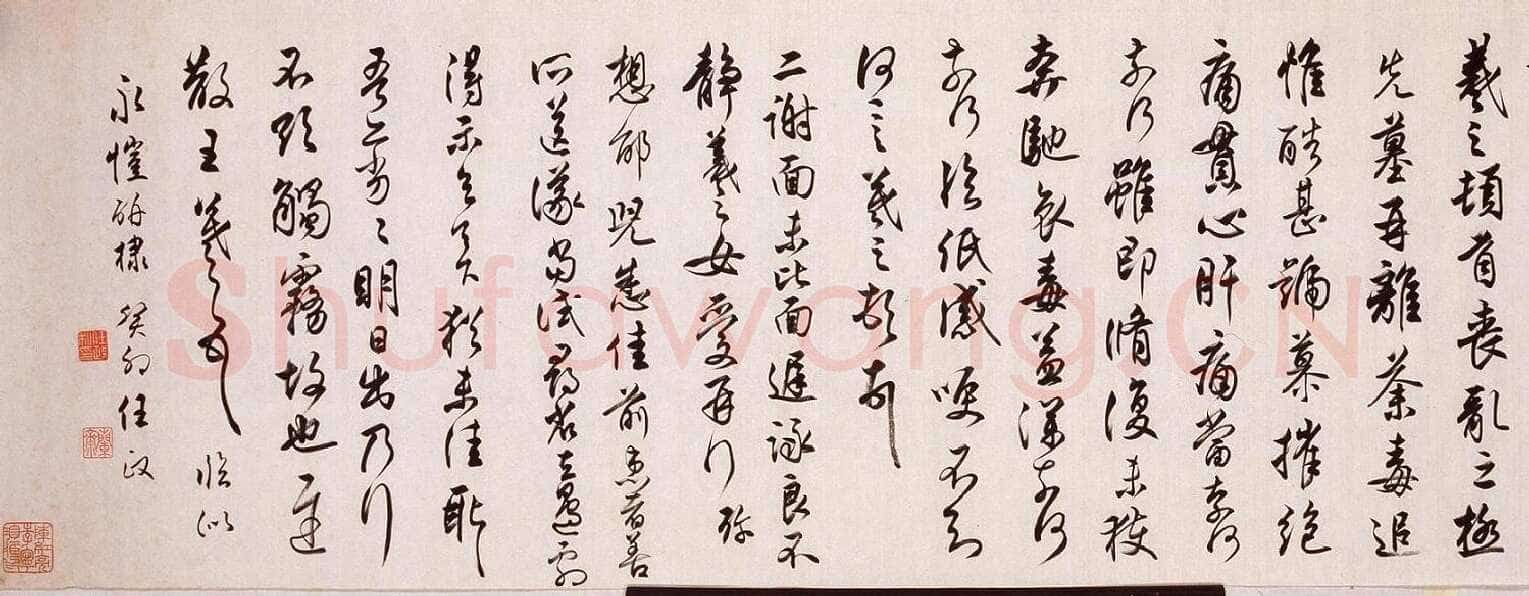 羲之頓首喪亂之極
先墓再離荼毒追
惟酷甚號慕摧絕
痛貫心肝痛當奈何
奈何雖即脩復未獲
奔馳哀毒益深奈何
奈何臨紙感哽不知
何言羲之頓首
二謝面未比面遲詠良不
靜羲之女愛再拜
想邰兒悉佳前患者善
所送議當試尋省左邊劇
得示知足下猶未佳耿
吾亦劣々明日出乃行
不欲觸霧故也遲
散王羲之頓首 臨似
永愷研棣 癸卯任政
Shufawang.CN